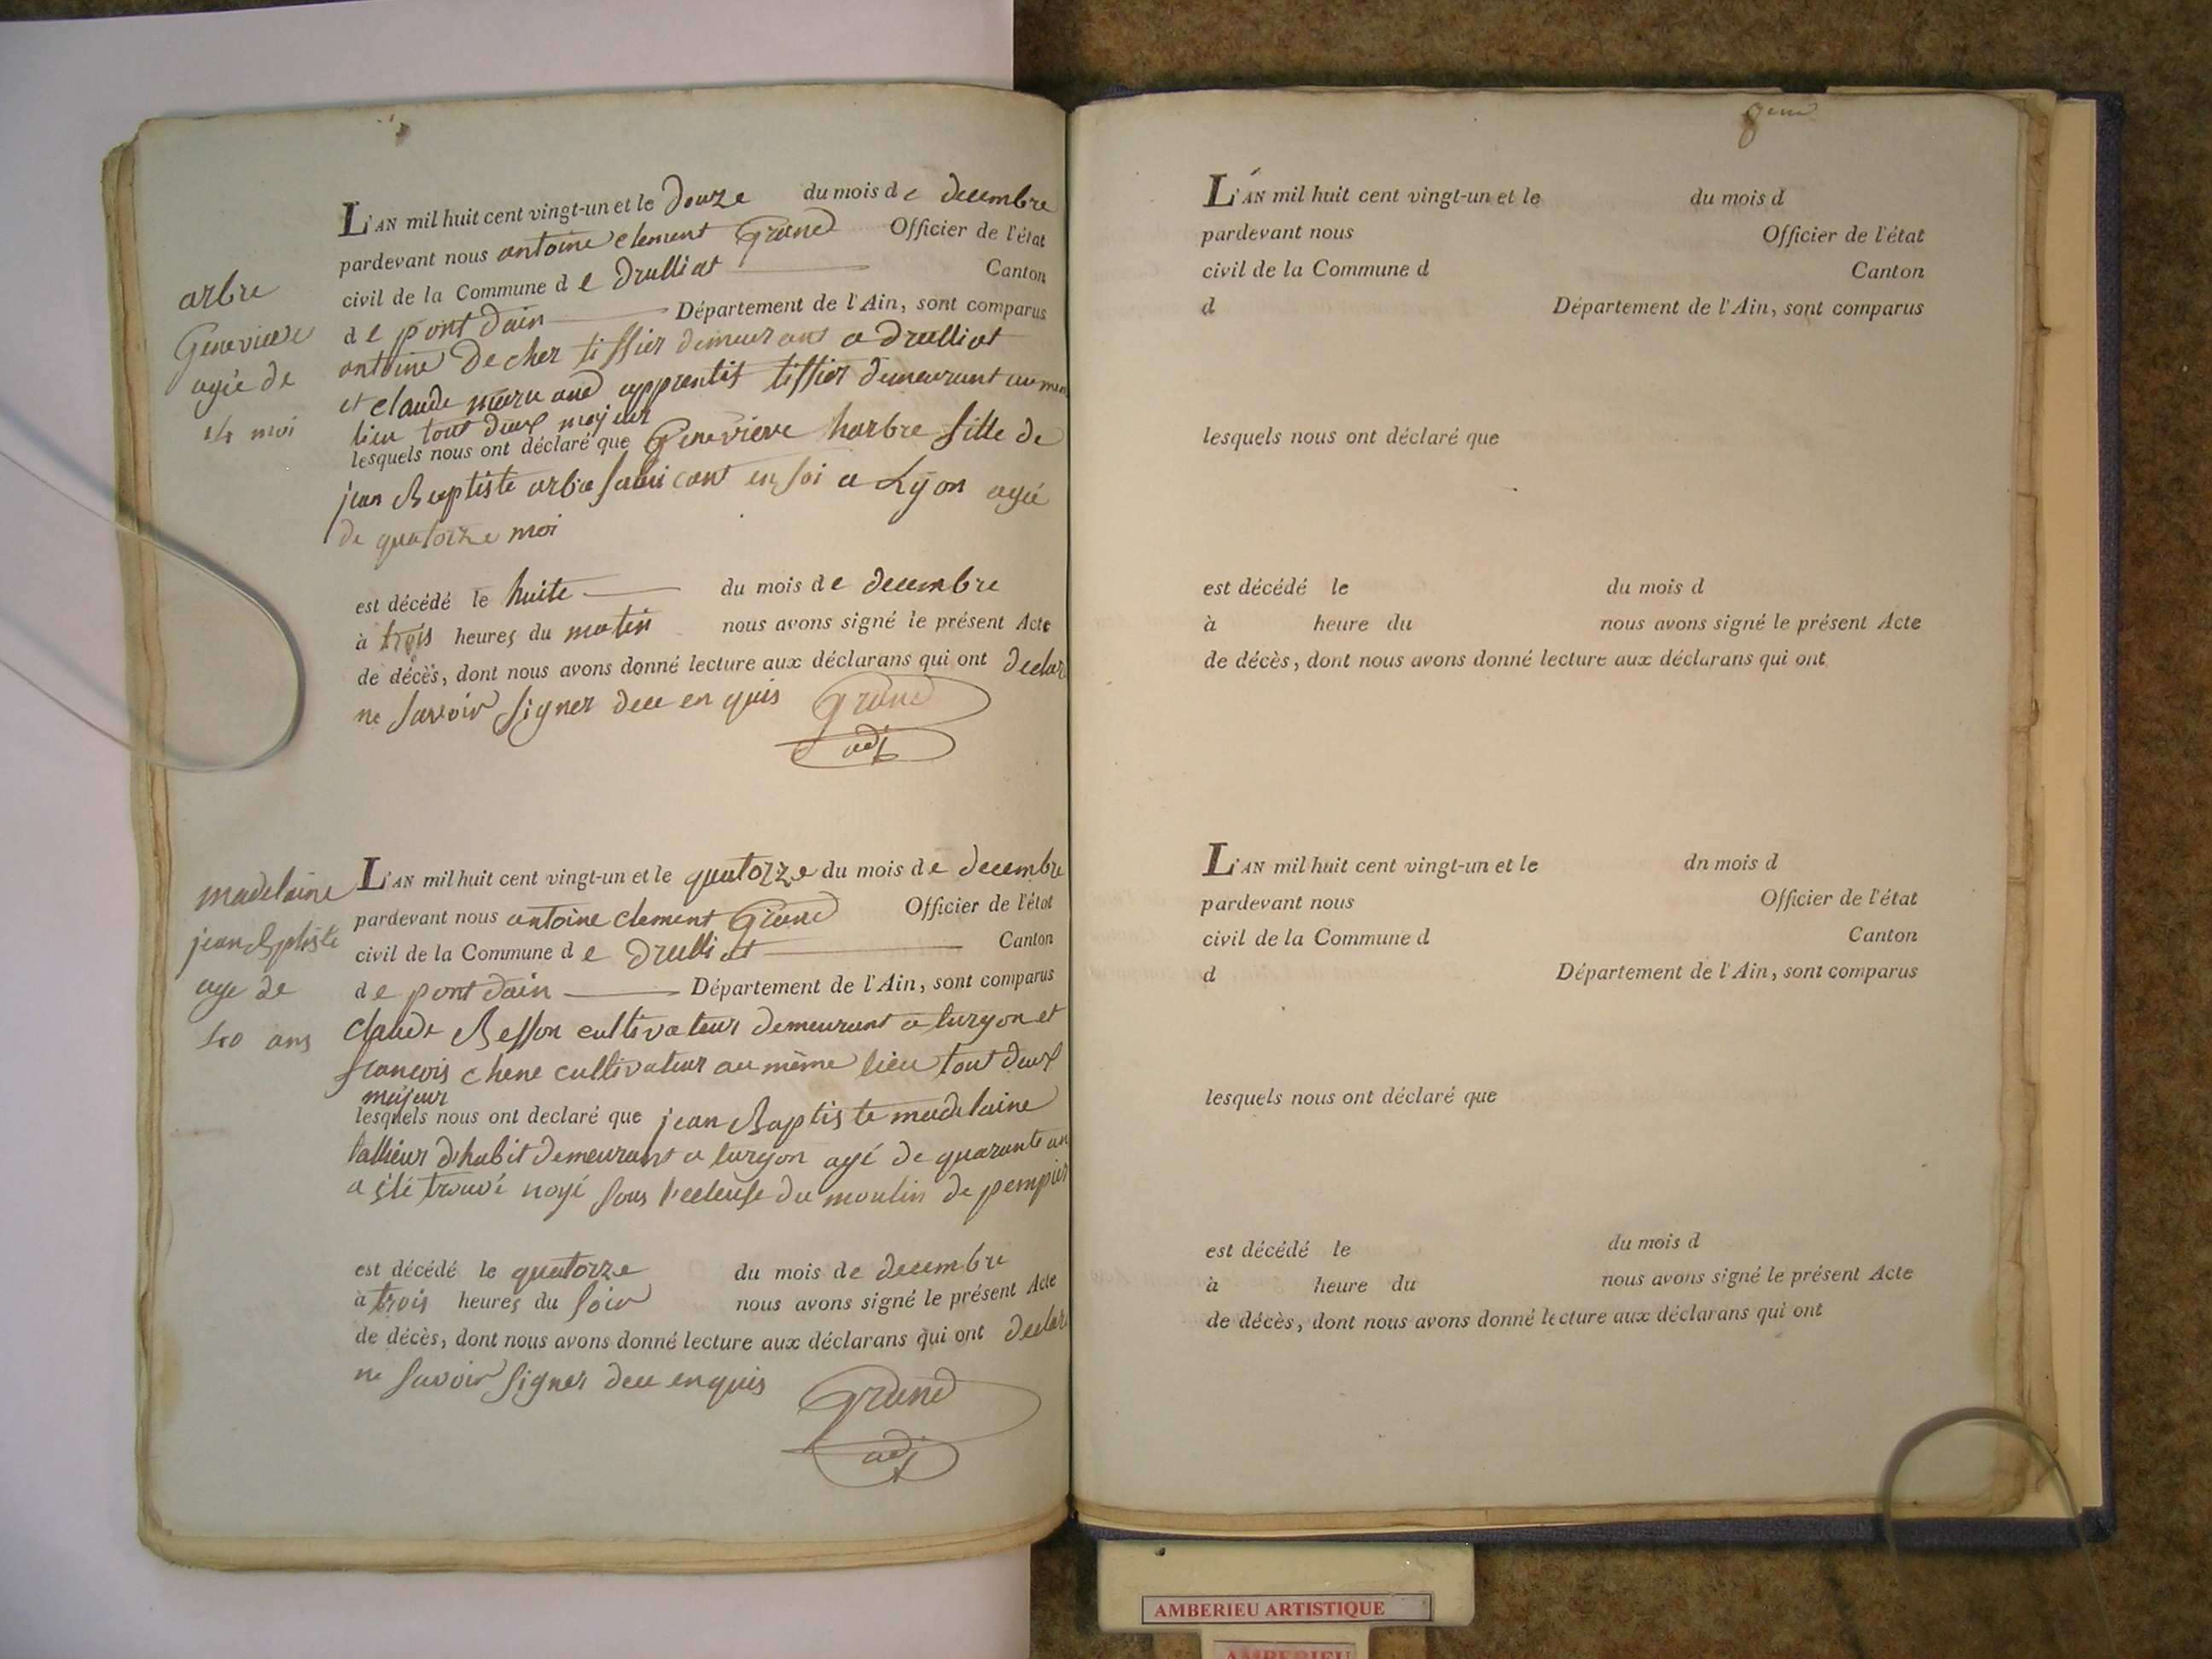 L'AN mil huit cent vingt-un et le douze du mois de decembre
pardevant nous antoine clement Grand Officier de l'état
civil de la Commune de Drulliat Canton
de pont dain Département de l'Ain, sont comparus
antoine Decher tissier demeurant a drulliat
et claude apprentis tissier demeurant au mem
lieu tout deux majeur
lesquels nous ont déclaré que Genevieve harbre fille de
jean Baptiste arbre fabricant en soi a Lyon agé
de quatorze moi
est décédé le huite du mois de decembre
à trois heures du matin nous avons signé le présent Acte
de décès, dont nous avons donné lecture aux déclarans qui ont declar
ne savoir signer dece en quis Grand
adj
arbre
Genevieve
agée de
14 moi
L'AN mil huit cent vingt-un et le quatorze du mois de decembre
pardevant nous antoine clement Grand Officier de l'état
civil de la Commune de Drulliat Canton
de pont dain Département de l'Ain, sont comparus
Claude Besson cultivateur demeurant a turgon et
francois chene cultivateur au même lieu tout deux
majeur
lesquels nous ont declaré que jean Baptiste madelaine
tallieur d'habit demeurant a turgon agé de quarante an
a été trouvé noyé sous l'ecleuse du moulin de
est décédé le quatorze du mois de decembre
à trois heures du soir nous avons signé le présent Acte
de décès, dont nous avons donné lecture aux déclarans qui ont declar
ne savoir signer dece enquis Grand
adj
madelaine
jean Bptiste
age de
40 ans
8eme
L'AN mil huit cent vingt-un et le du mois d
pardevant nous Officier de l'état
civil de la Commune d Canton
d Département de l'Ain, sont comparus
lesquels nous ont déclaré que
est décédé le du mois d
à heure du nous avons signé le présent Acte
de décès, dont nous avons donné lecture aux déclarans qui ont
L'AN mil huit cent vingt-un et le dn mois d
pardevant nous Officier de l'état
civil de la Commune d Canton
d Département de l'Ain, sont comparus
lesquels nous ont déclaré que
est décédé le du mois d
à heure du nous avons signé le présent Acte
de décès, dont nous avons donné lecture aux déclarans qui ont
AMBERIEU ARTISTIQUE
AMBERIEU